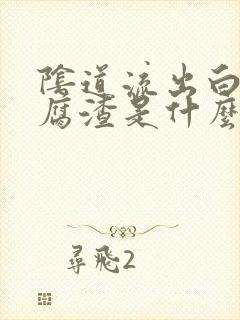 陰道流出白
腐渣是什麼
尋飛2